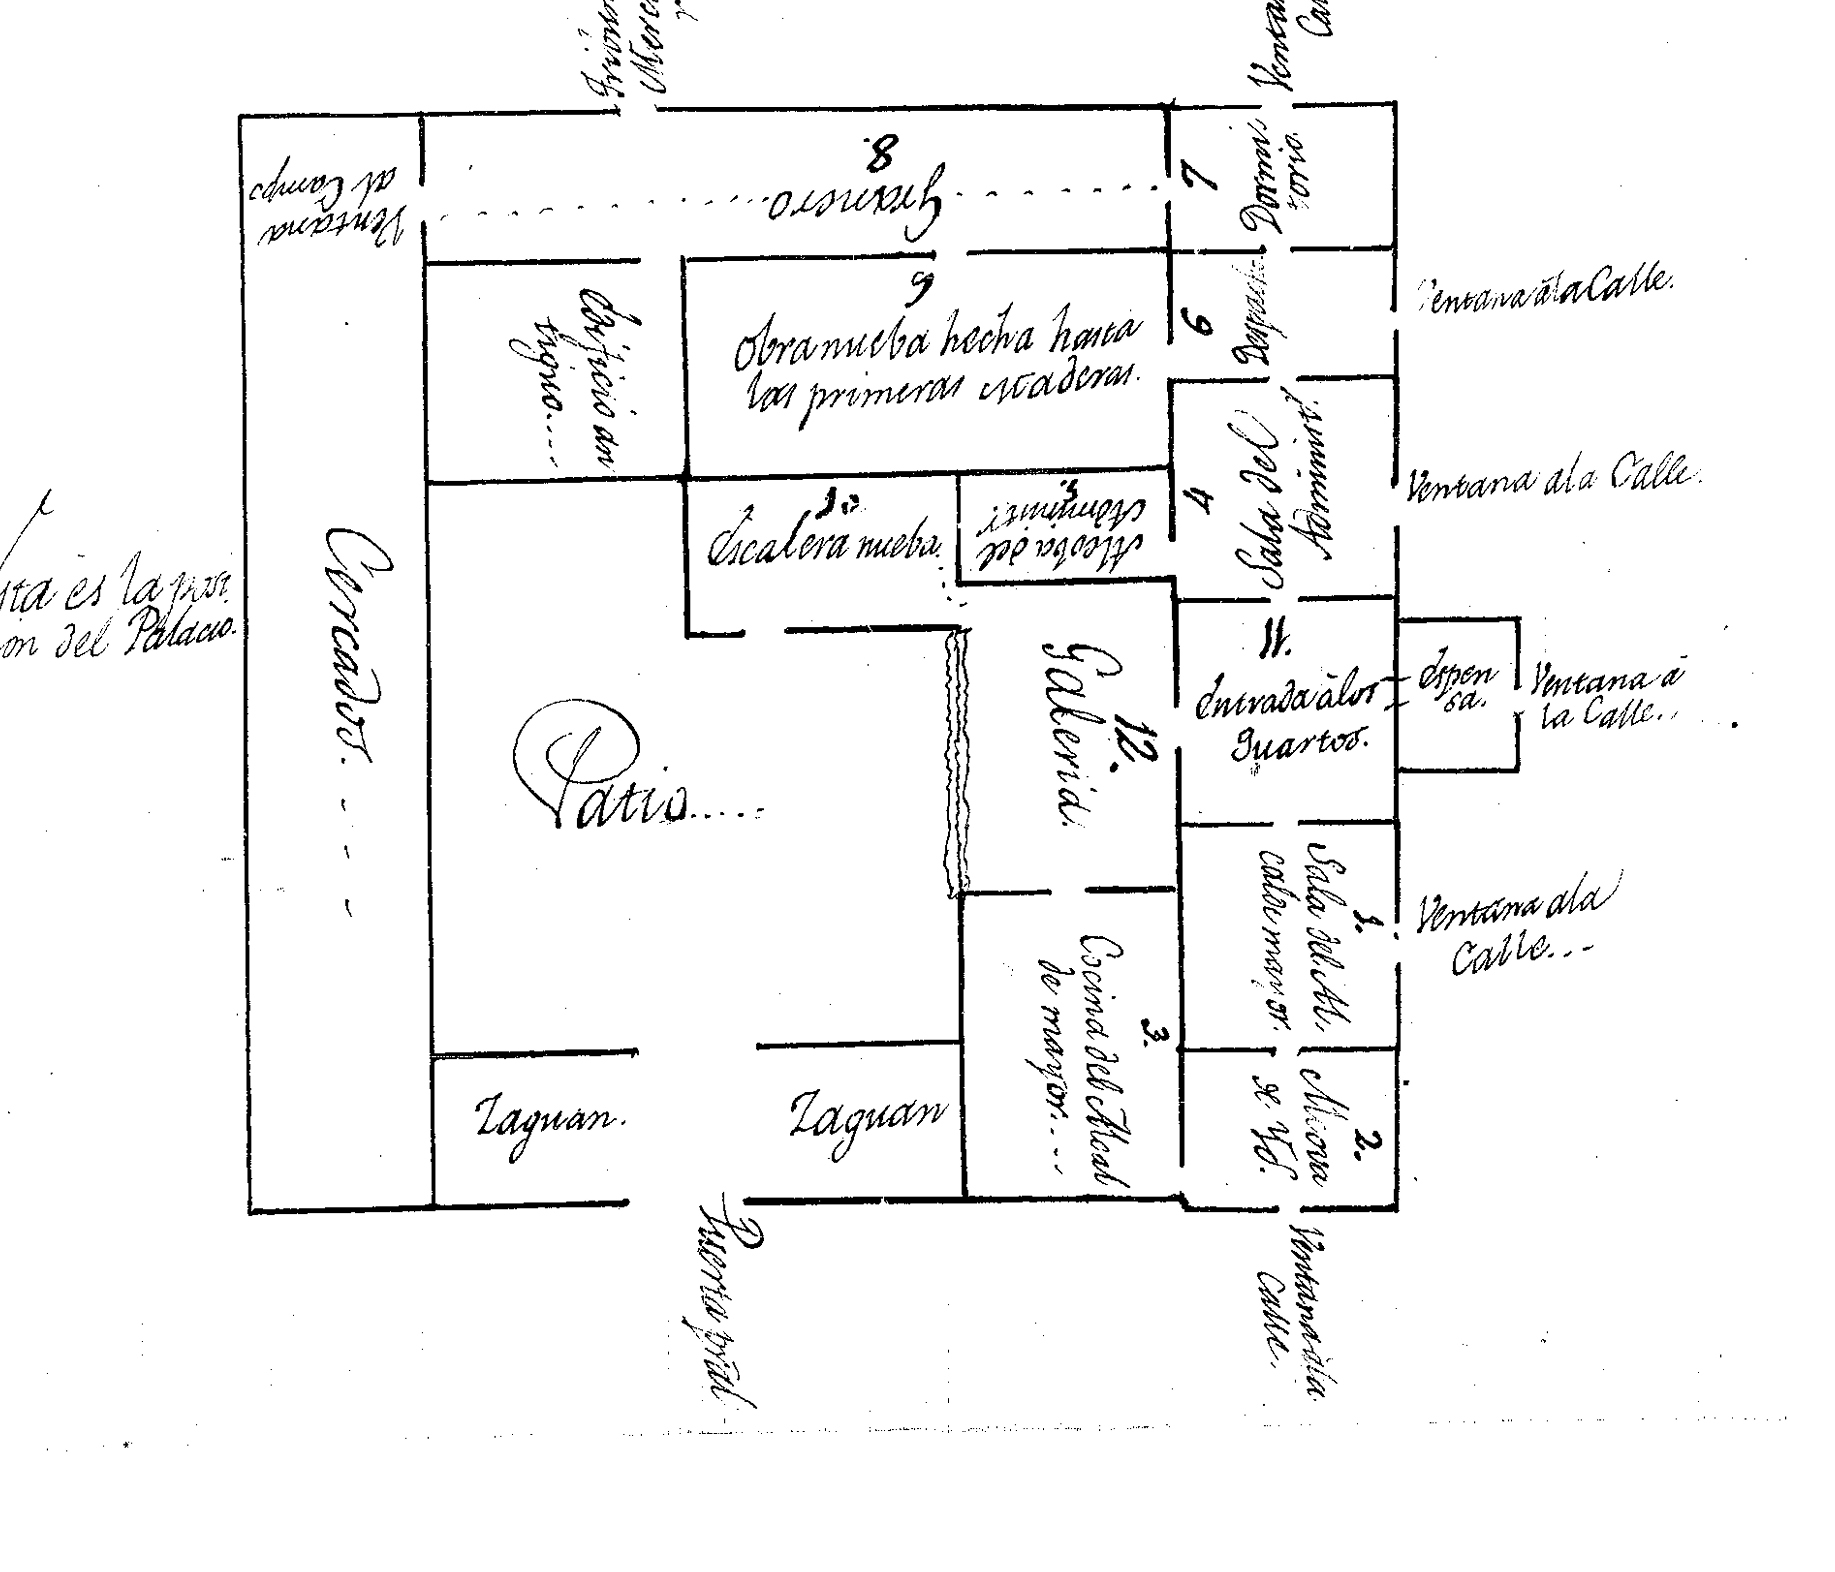 Ventana
al Campo
8.
Granero
7
Dormi
torio
9
Obra nueba hecha hasta
las primeras escaderas.
Edificio an
tiguo....
6
Despacho
Ventana ála Calle.
10
Escalera nueba.
5.
Alcoba del
Administ
4
Sala del
Administ.r
Ventana ala Calle.
es la posi
on del Palacio.
Cercados. - - -
Patio.....
12.
Galeria.
11.
Entrada álos
quartos.
Espen
sa.
Ventana á
la Calle..
1.
Sala del Al,
calde mayor.
Ventana ala
Calle...
3.
Cocina del Alcal
de mayor....
2.
Zaguan.
Zaguan
Puerta prãl
Ventana ala
Calle.